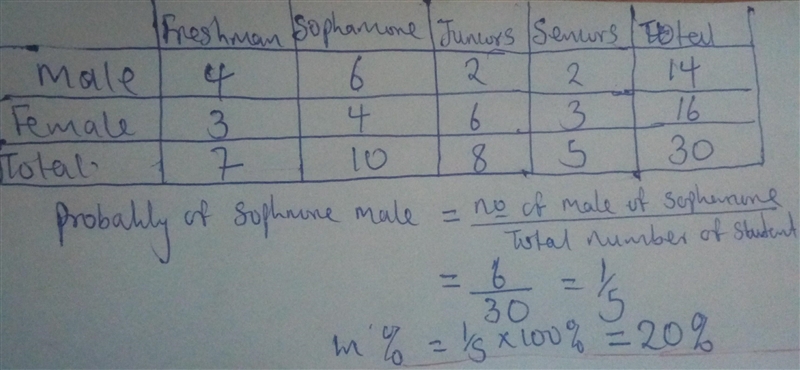 Freshman Sophamore Juniors Seniors Total
Male 4 6 2 2 14
Female 3 4 6 3 16
Total 7 10 8 5 30
Probably of Sophmore male = no of male of sophomore
Total number of student
= 6/30 = 1/5
in % = 1/5 × 100% = 20%